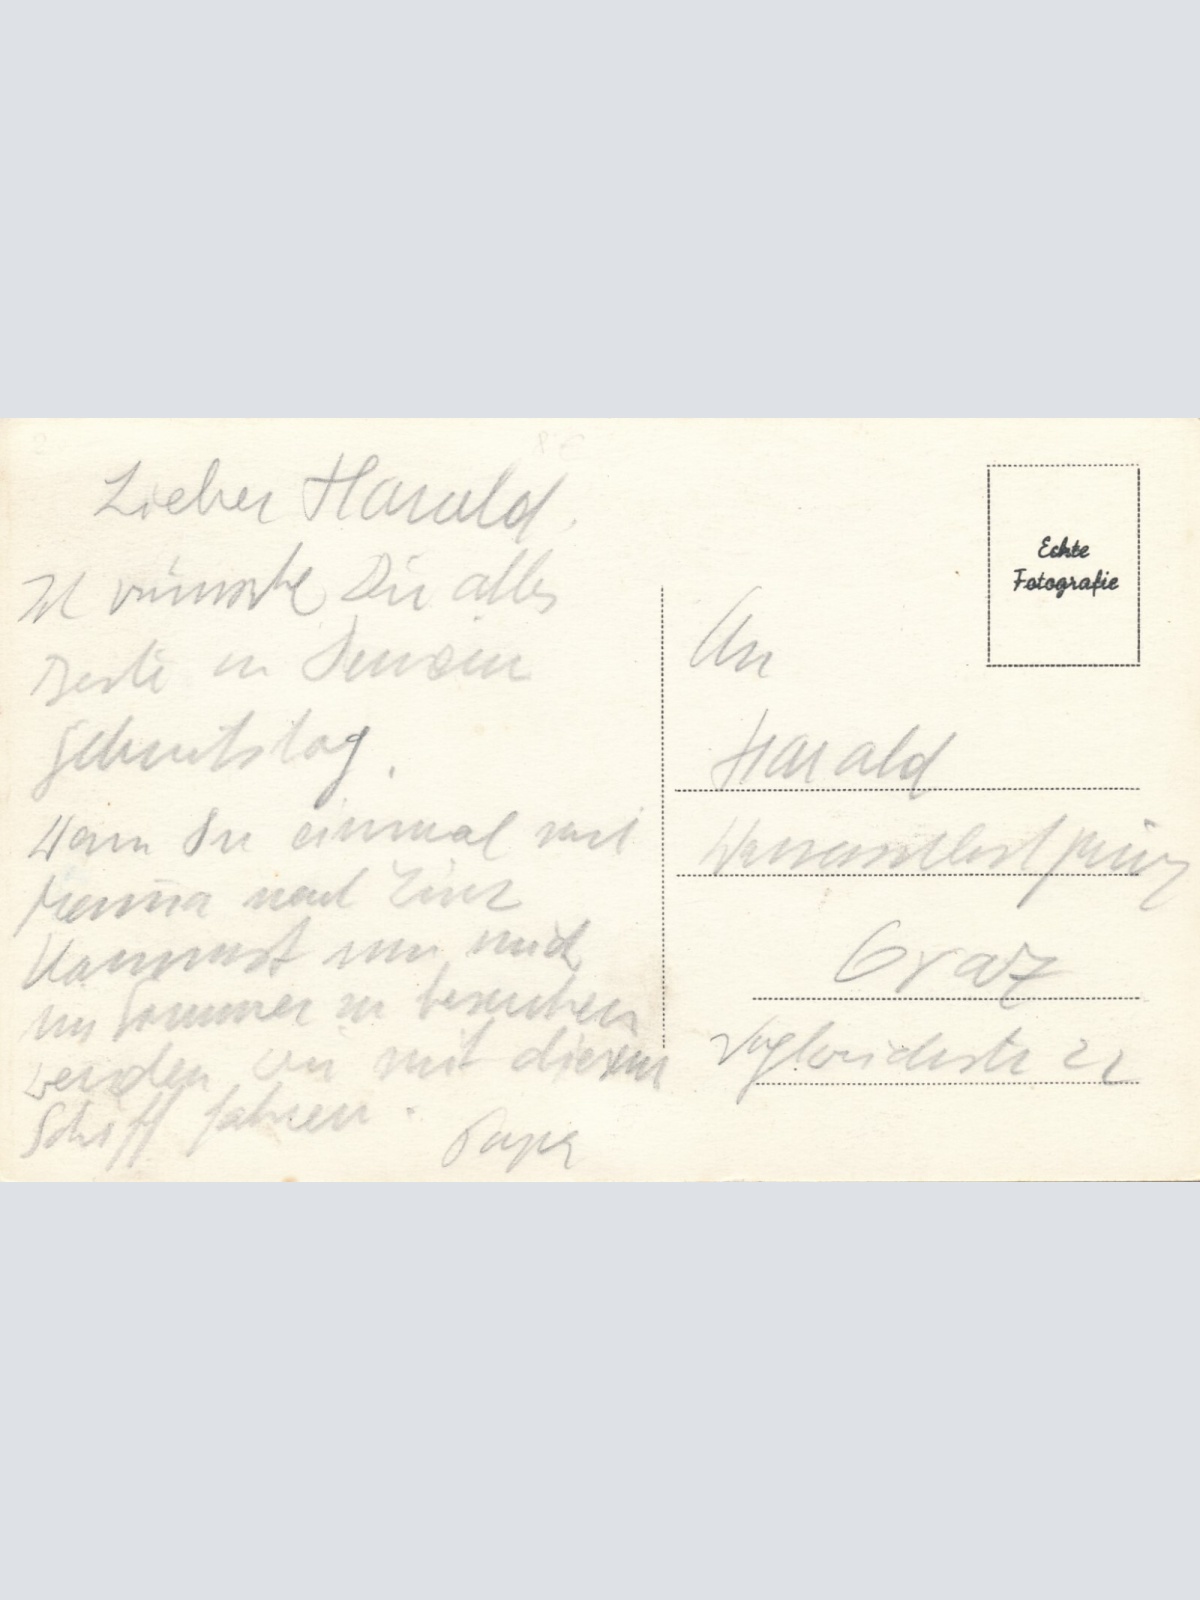 Lieber Harald.
Ich wünsche Dir alles
Beste zu Deinem
Geburtstag.
Wenn Du einmal mit
Mamma nach Linz
kommst um mich
im Sommer zu besuchen
werden wir mit diesem
Schiff fahren.
Papa
Echte
Fotografie
An
Harald
Graz
22